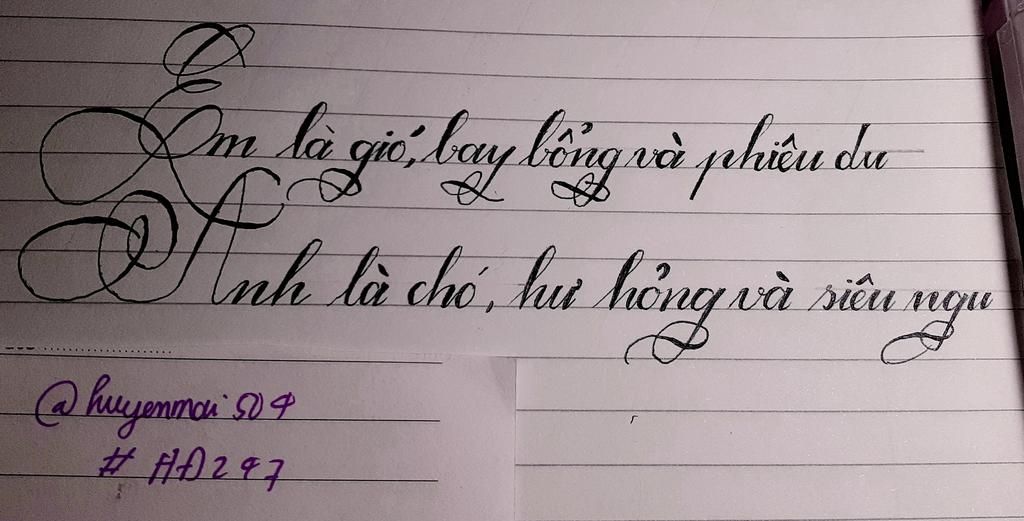 Em là gió, bay bổng và phiêu du
Anh là chó, hư hỏng và siêu ngu
@huyenmai504
#HĐ247